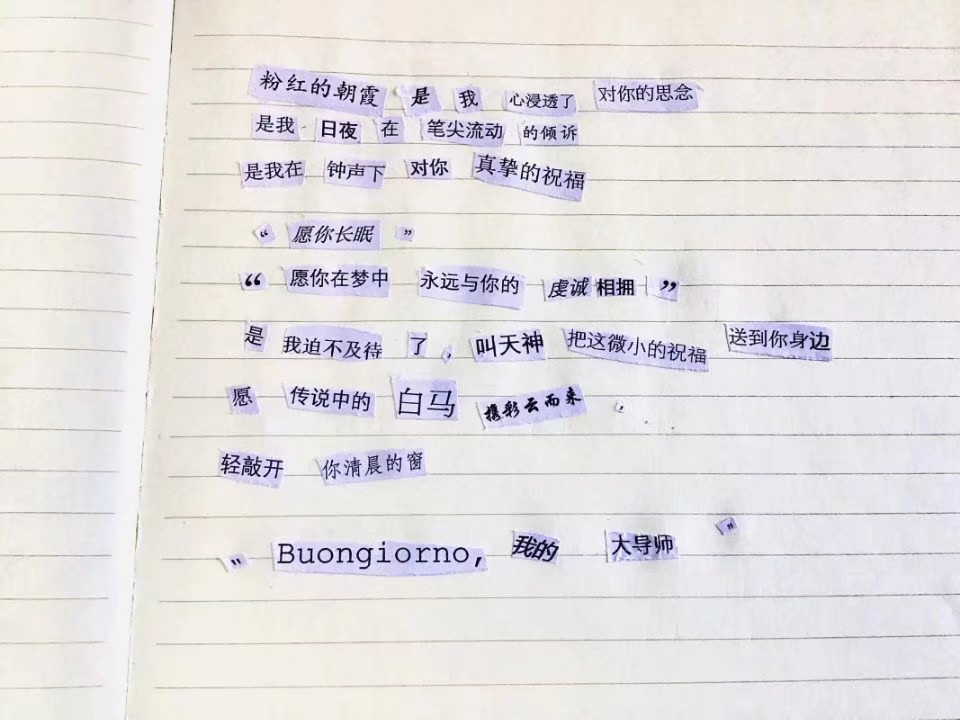 粉红的朝霞 是 我 心浸透了 对你的思念
是我 日夜 在 笔尖流动 的倾诉
是我在 钟声下 对你 真挚的祝福
“ 愿你长眠 ”
“ 愿你在梦中 永远与你的 虔诚 相拥 ”
是 我迫不及待 了 , 叫天神 把这微小的祝福 送到你身边
愿 传说中的 白马 携彩云而来 ,
轻敲开 你清晨的窗
" Buongiorno, 我的 大导师 "